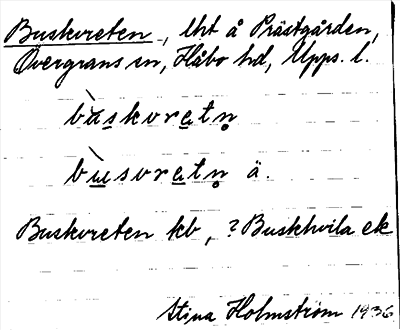 Buskvreten, lht å Prästgården,
Övergrans sn, Håbo hd, Upps. l.
bùskvretn̥
bùsvretn̥ ä.
Buskvreten kb, ? Buskhvila ek
Stina Holmström 1936